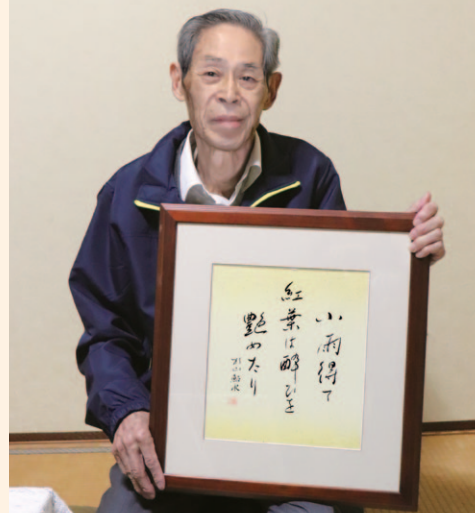 小雨得て
紅葉は酔ひを
艶めたり